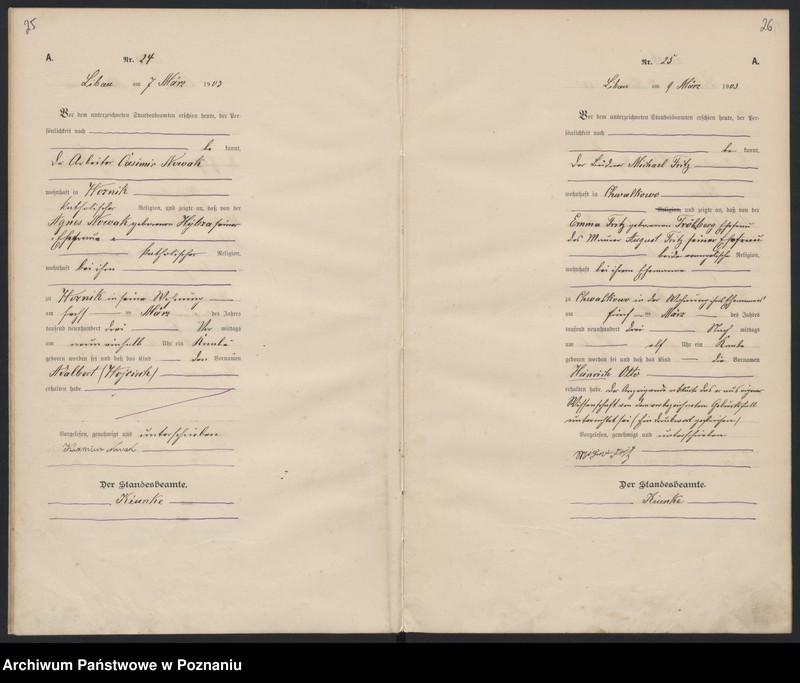 25
A.
Nr. 24
Libau am 7 März 1903
Vor dem unterzeichneten Standesbeamten erschien heute, der Per-
sönlichkeit nach
be kannt,
Der Arbeiter Casimir Nowak
wohnhaft in Woznik
katholischer Religion, und zeigte an, daß von der
Agnes Nowak geborenen seiner
Ehefrau
katholischer Religion,
wohnhaft bei ihm
zu Woznik in seiner Wohnung
am sechs ten März des Jahres
tausend neunhundert drei Vor mittags
am neun einhalb Uhr ein Knabe
geboren worden sei und daß das Kind den Vornamen
Adalbert (Wojciech)
erhalten habe
Vorgelesen, genehmigt und unterschrieben
Kazmierz Nowak
Der Standesbeamte.
26
Nr. 25
A.
Libau am 9 März 1903
Vor dem unterzeichneten Standesbeamten erschien heute, der Per-
sönlichkeit nach
be kannt,
Der Michael Fritz
wohnhaft in Chwalkowo
Religion, und zeigte an, daß von der
Emma Fritz geborenen Ehefrau
des Maurer August Fritz seiner Ehefrau
beide evangelische Religion,
wohnhaft bei ihrem Ehemanne
zu Chwalkowo in der Wohnung ihres Ehemannes
am fünf ten März des Jahres
tausend neunhundert drei Nach mittags
um elf Uhr ein Knabe
geboren worden sei und daß das Kind die Vornamen
Heinrich Otto
erhalten habe. Der Anzeigende erklärte daß er aus eigener
Wissenschaft von dem Geburtsfall
unterrichtet sei
Vorgelesen, genehmigt und unterschrieben
Der Standesbeamte.
Archiwum Państwowe w Poznaniu